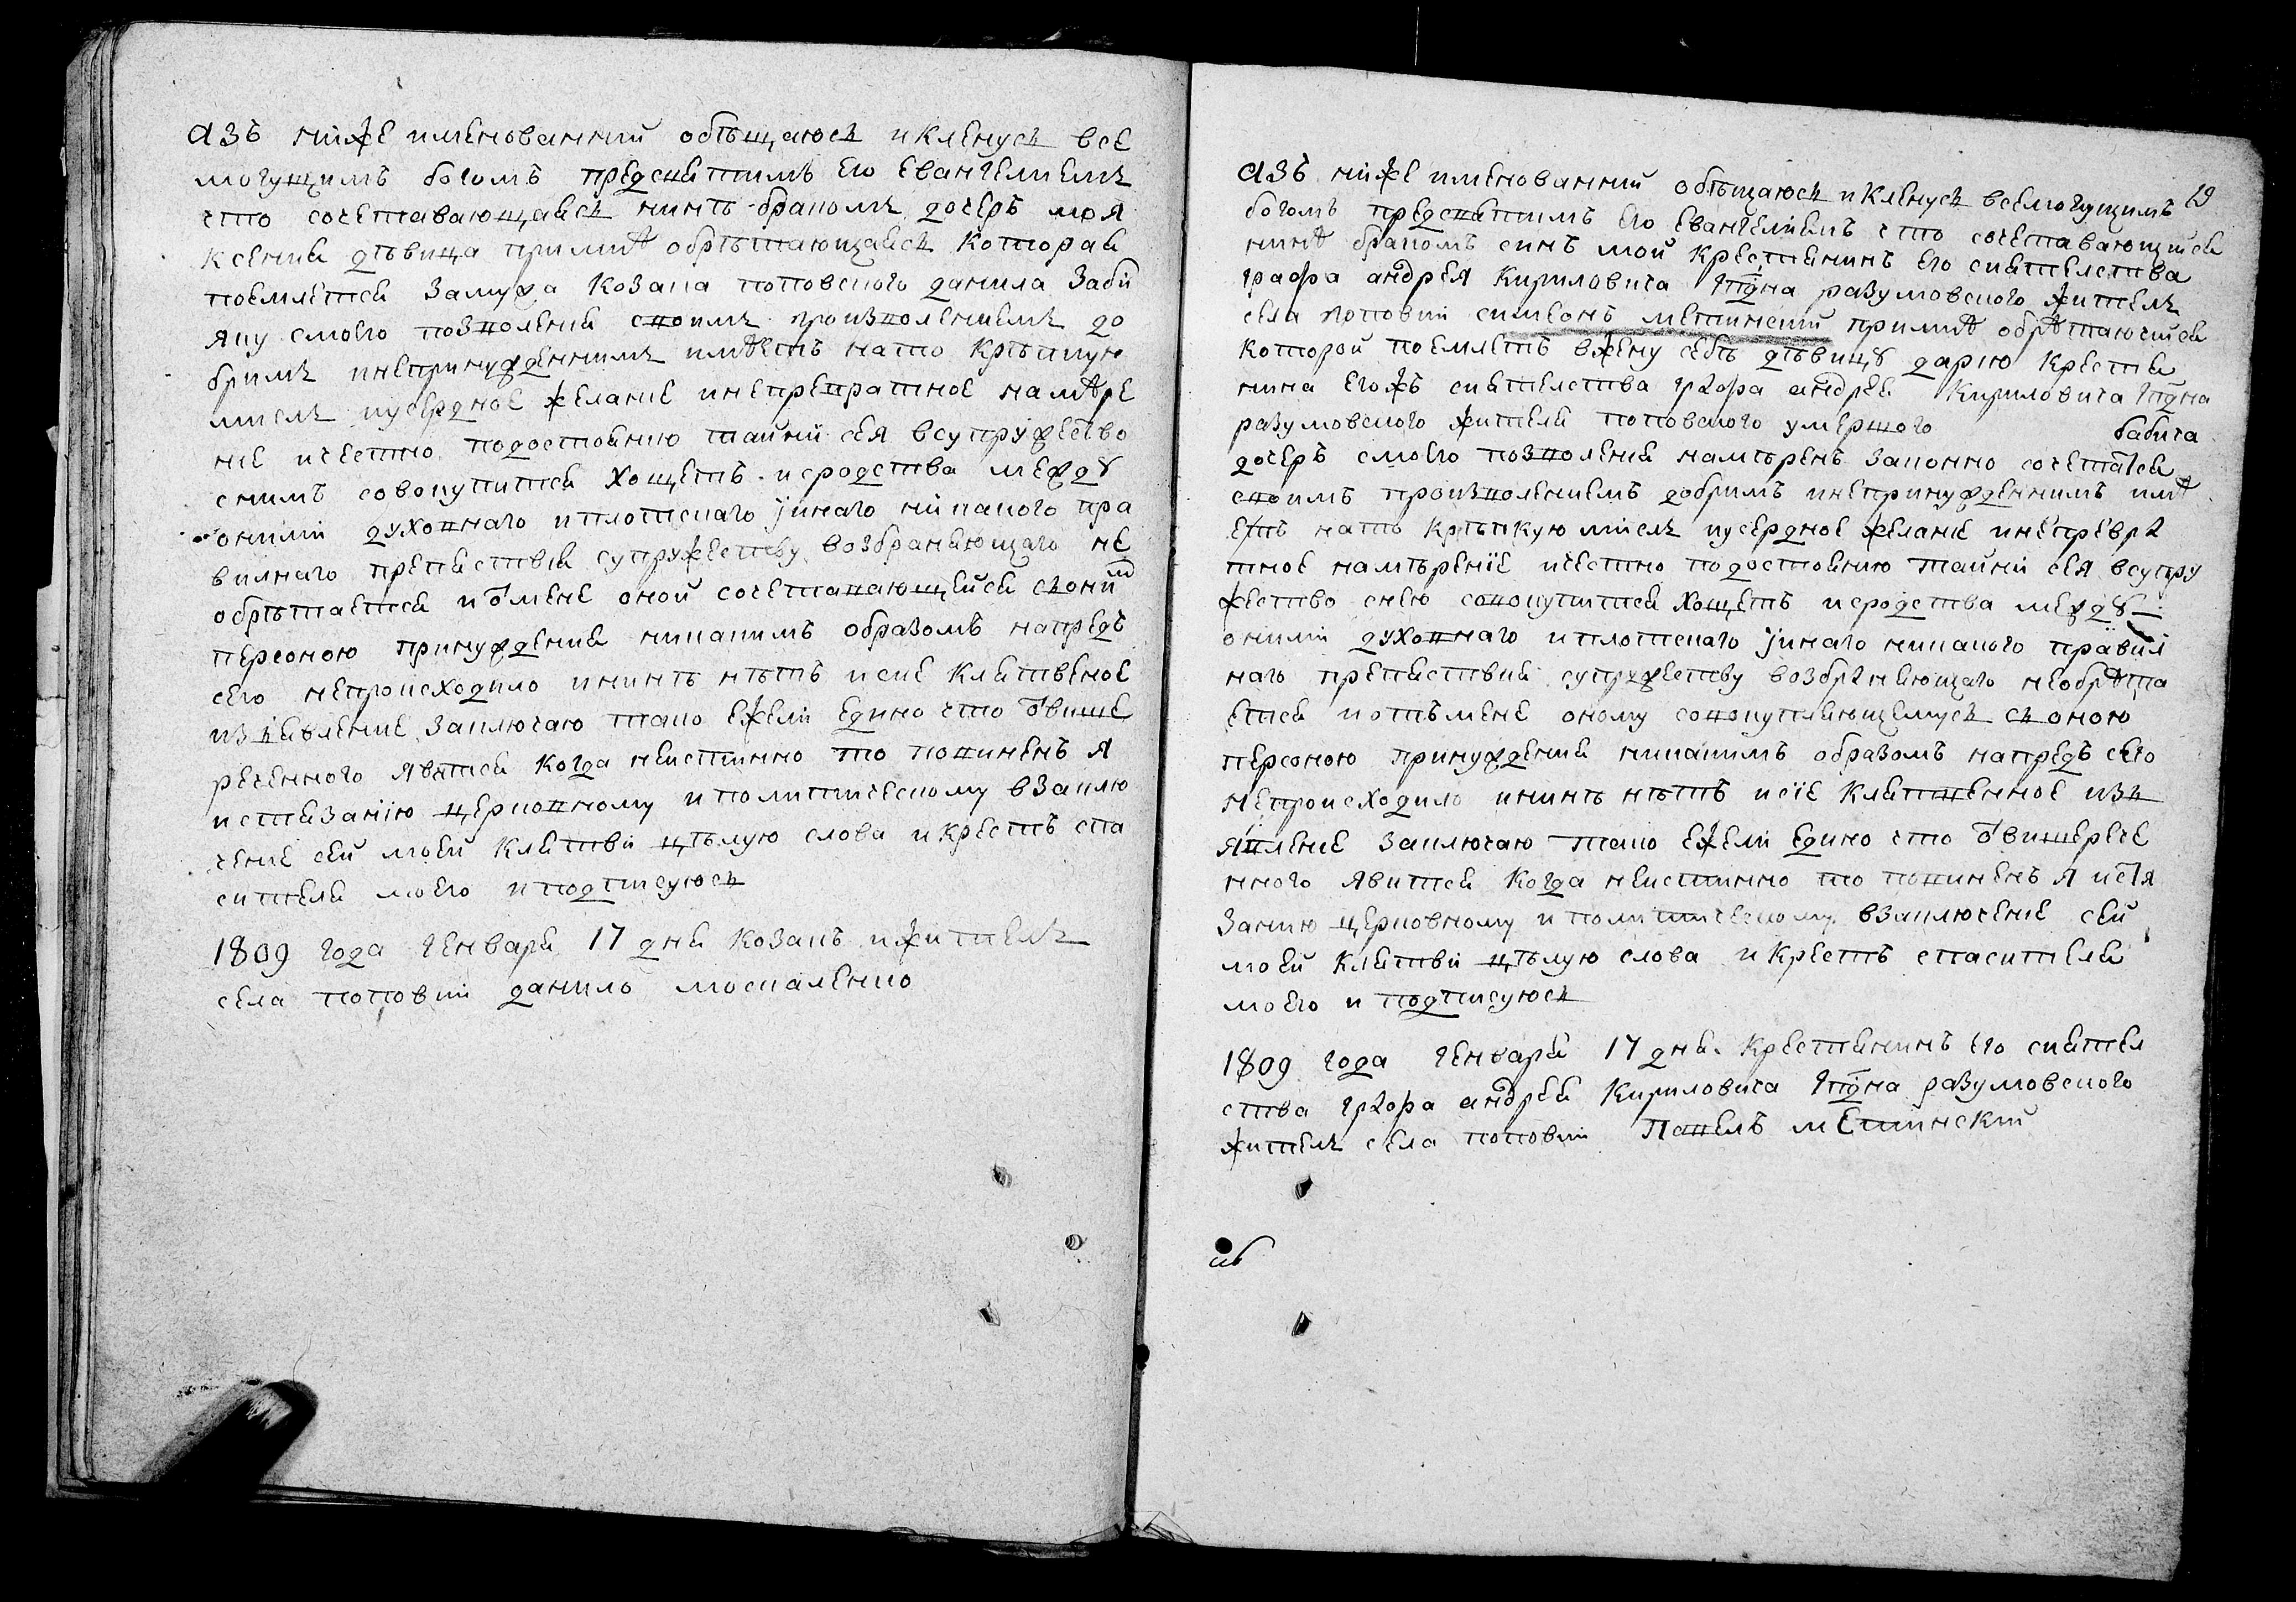 азъ ниже именованний обѣщаюсь и Кленусь все
могущимъ богомъ предсвятимъ Его Евангелиемъ
что сочетавающаяся нинѣ бракомъ дочеръ моя
Ксения дѣвица приммѣ обрѣтающаяся Которая
поемлется замужа Козака поповского данила Забі
яку смоего позволения своимъ произволениемъ до
бримъ инепринужденнимъ имѣетъ на то Крѣпкую
мислъ иусердное желание инепревратное намѣре
ние ичестно подостоянию тайнй сея всупружество
снимъ совокупится хощетъ исродства между
оними духовнаго иплотскаго јинаго никакого пра
вилнаго препятствія супружеству возбраняющаго не
обрѣтается и ѿмене оной сочетавающейся съонй
персоною принуждения никакимъ образомъ напредъ
сего непроисходило ининѣ нѣтъ исие Клятвеное
изъявление заключаю тако ежели Едино что ѿвише
реченного явится Когда неистинно то повиненъ я
истязанію церковному и политическому взаклю
чение сей моей Клятви цѣлую слова и Крестъ спа
сителя моего и подписуюсь
1809 года генваря 17 дня Козакъ и житель
села поповки данило москаленко
19
азъ ниже именованний обѣщаюсь и Кленусь всемогущимъ
богомъ предсвятимъ Его Евангелиемъ что сочетавающийся
нинѣ бракомъ синъ мой Крестянинъ Его сиятелства
графа андрея Кириловича разумовского житель
села поповки симеонъ метинский приммѣ обрѣтаючийся
Которой поемлетъ вжену себѣ дѣвицу дарю Крестя
нина Егожъ сиятелства графа андрея Кириловича
разумовского жителя поповского умершого бабича
дочеръ смоего позволения намѣренъ законно сочетатся
своимъ произволениемъ добримъ инепринужденнимъ имѣ
етъ натѣ Крѣпкую мислъ иусердное желание инепревра
тное намѣреніе ичестно подостоянию тайнй сея всупру
жество снею совокупится хощетъ исродства между
оними духовнаго иплотскаго јинаго никакого правил
наго препятствия супружеству возбраняющаго необрѣта
ется иотъмене оному совокупляющемусь съоною
персоною принуждения никакимъ образомъ напредъ сего
непроисходило ининѣ нѣтъ исіе Клятвенное изъ
явление заключаю тако ежели Едино что ѿвишерече
нного явится Когда неистинно то повиненъ я истя
занию церковному и политическому взаключение сей
моей Клятви цѣлую слова и Крестъ спасителя
моего и подписуюсь
1809 года генваря 17 дня Крестянинъ Его сиятел
ства графа андрея Кириловича разумовского
житель села поповки Павелъ метинский